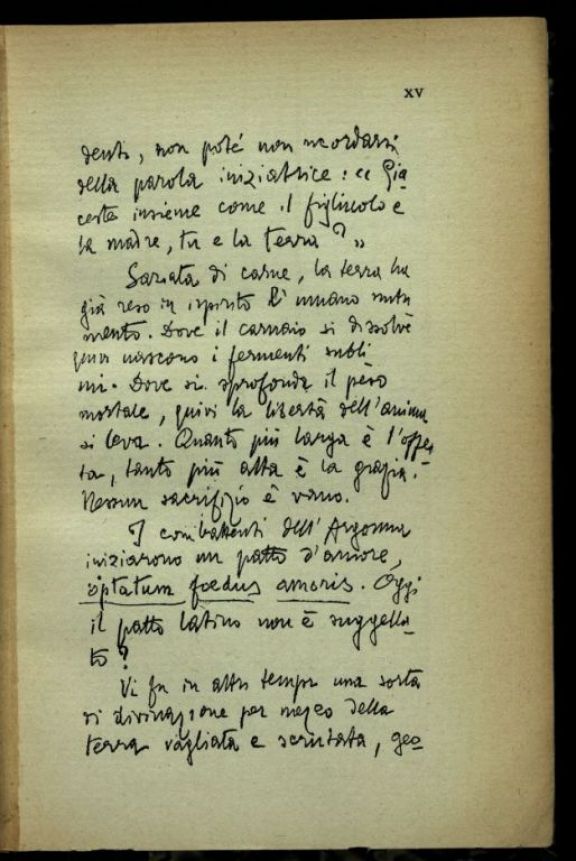 XV
dente, non poté non ricordarsi
della parola iniziatrice: « Gia
ceste insieme come il figliuolo e
la madre, tu e la terra? »
Saziata di carne, la terra ha
già reso in ispirito l'umano nutri
mento. Dove il carnaio si dissolve
quivi nascono i fermenti subli
mi. Dove si sprofonda il peso
mortale, quivi la libertà dell'anima
si leva. Quanto più larga è l'offer
ta, tanto più alta è la grazia. –
Nessun sacrifizio è vano.
I combattenti dell'Argonna
iniziarono un patto d'amore,
optatum foedus amoris. Oggi
il patto latino non è suggella-
to?
Vi fu in altri tempi una sorta
di divinazione per mezzo della
terra vagliata e scrutata, geo-